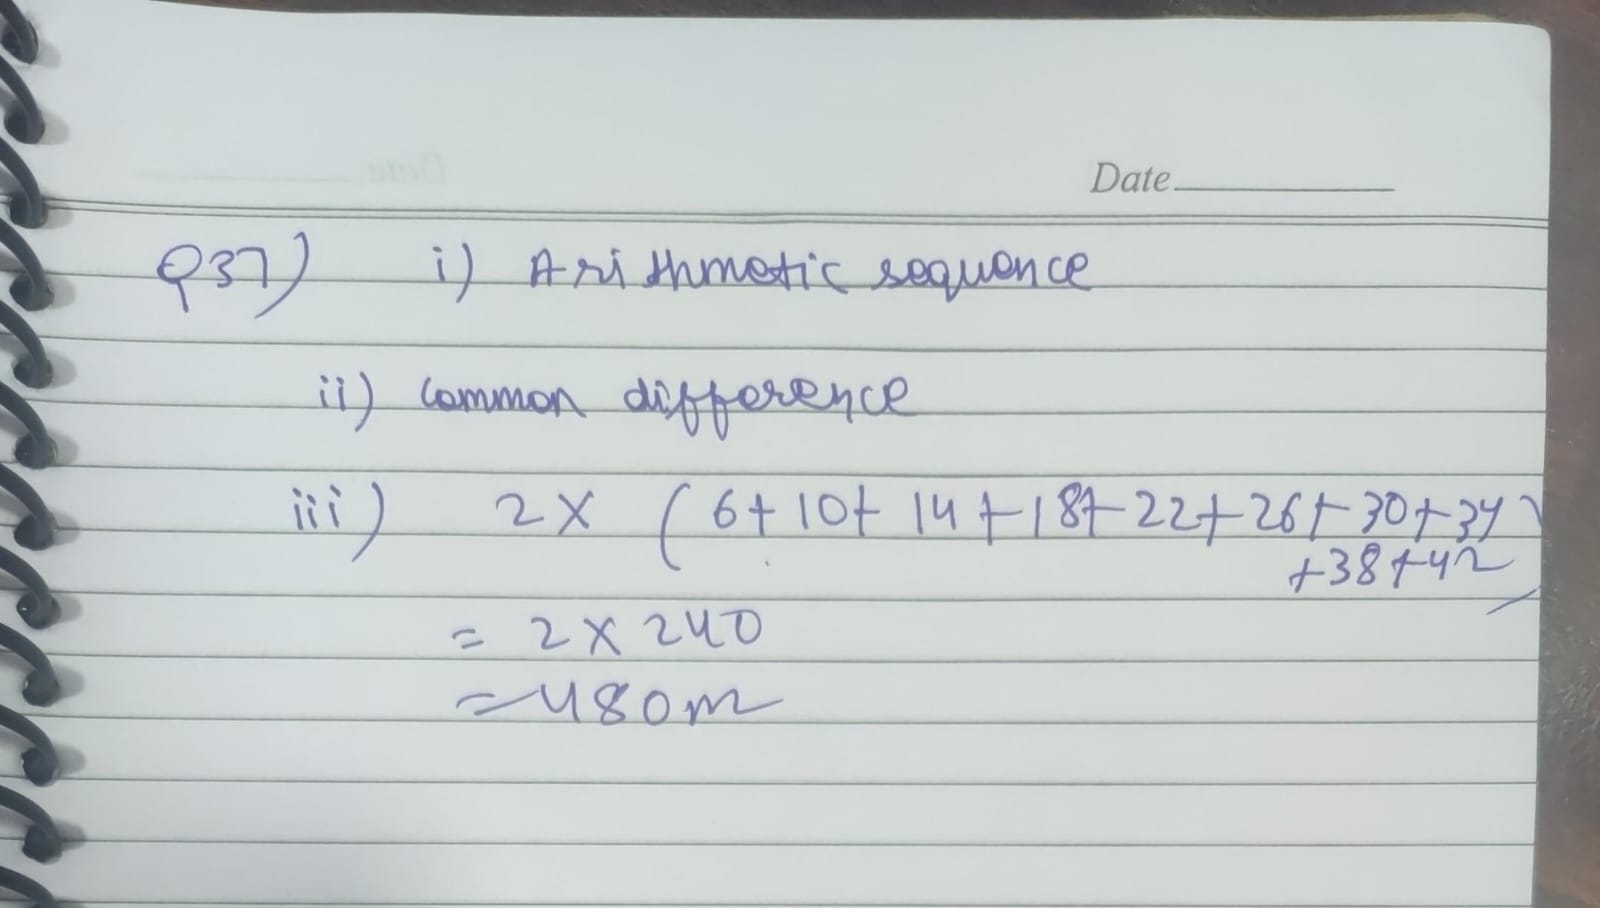 Date
Q37) i) Arithmetic sequence
ii) Common difference
iii) 2 x (6+10+14+18+22+26+30+34
+38+42)
= 2 x 240
= 480m